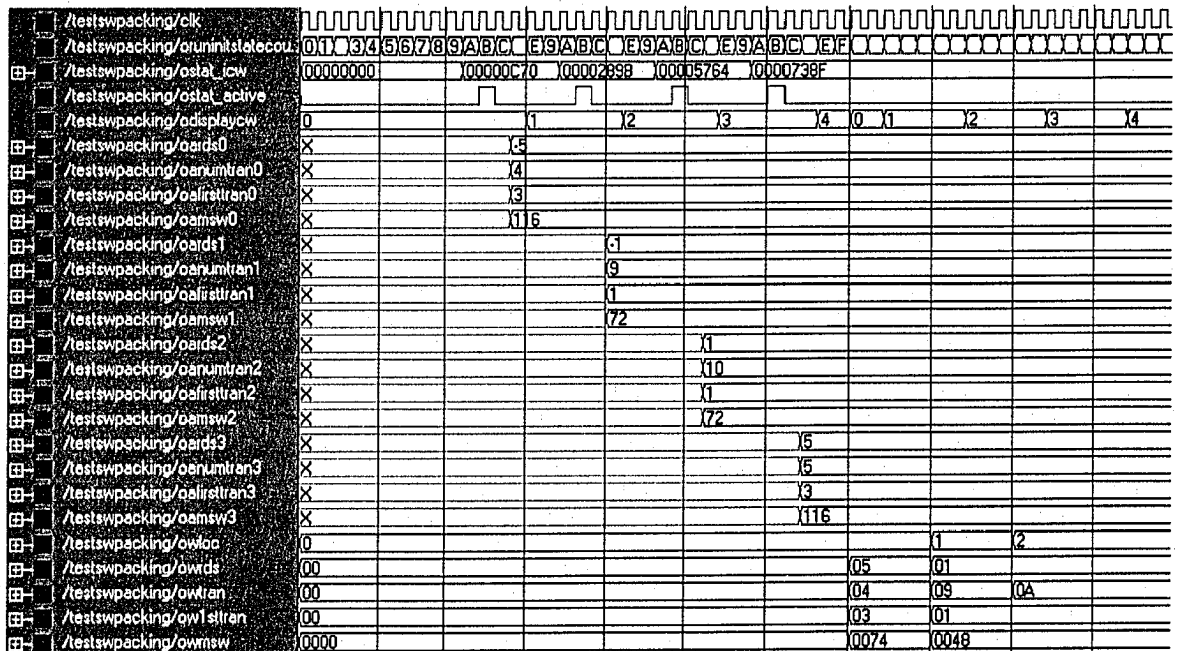 /testswpacking/clk
/testswpacking/oruninitstatecou 0 1 3 4 5 6 7 8 9 A B C E 9 A B C E 9 A B C E 9 A B C E F
/testswpacking/ostat_icw 00000000 00000C70 0000289B 00005764 0000738F
/testswpacking/ostat_active
/testswpacking/odisplaycw 0 1 2 3 4 0 1 2 3 4
/testswpacking/oards0 X -5
/testswpacking/oanumtran0 X 4
/testswpacking/oafirsttran0 X 3
/testswpacking/oamsw0 X 116
/testswpacking/oards1 X -1
/testswpacking/oanumtran1 X 9
/testswpacking/oafirsttran1 X 1
/testswpacking/oamsw1 X 72
/testswpacking/oards2 X 1
/testswpacking/oanumtran2 X 10
/testswpacking/oafirsttran2 X 1
/testswpacking/oamsw2 X 72
/testswpacking/oards3 X 5
/testswpacking/oanumtran3 X 5
/testswpacking/oafirsttran3 X 3
/testswpacking/oamsw3 X 116
/testswpacking/owloc 0 1 2
/testswpacking/owrds 00 05 01
/testswpacking/owtran 00 04 09 0A
/testswpacking/ow1sttran 00 03 01
/testswpacking/owmsw 0000 0074 0048